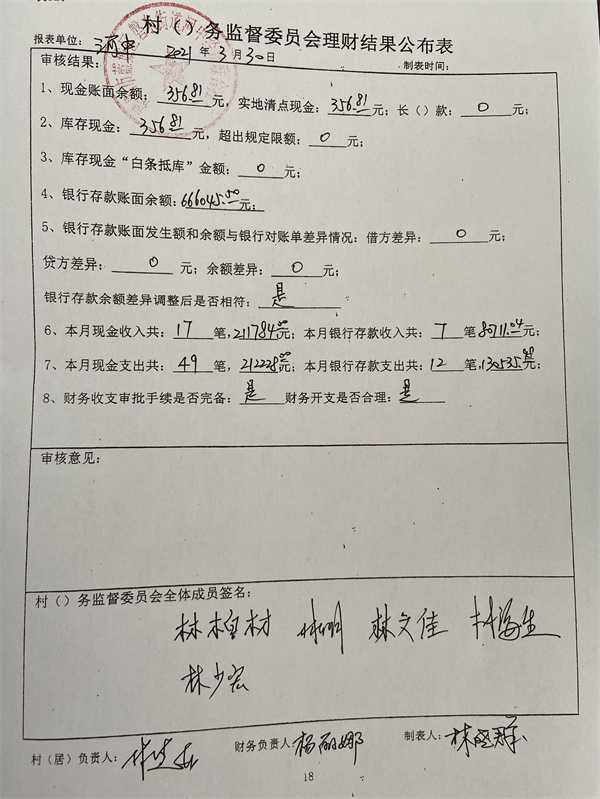 村（）务监督委员会理财结果公布表
报表单位：河中 2021年3月30日 制表时间：
审核结果：
1、现金账面余额：356.81元，实地清点现金：356.81元；长（）款：0元；
2、库存现金：356.81元，超出规定限额：0元；
3、库存现金“白条抵库”金额：0元；
4、银行存款账面余额：666045.50元；
5、银行存款账面发生额和余额与银行对账单差异情况：借方差异：0元；
贷方差异：0元；余额差异：0元；
银行存款余额差异调整后是否相符：是
6、本月现金收入共：17笔，211784.00元；本月银行存款收入共：7笔80711.04元；
7、本月现金支出共：49笔，212228.00元；本月银行存款支出共：12笔，130535.48元；
8、财务收支审批手续是否完备：是 财务开支是否合理：是
审核意见：
村（）务监督委员会全体成员签名：
林文佳
林少宏
村（居）负责人： 财务负责人：杨丽娜 制表人：
18